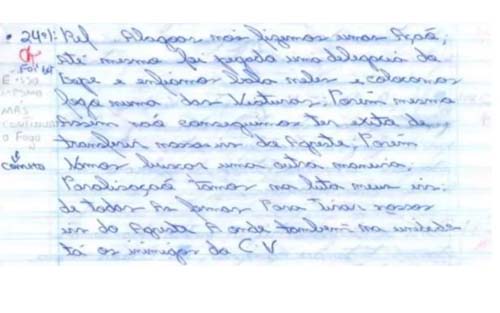 • 24º): Ref Alagoas nós fizemos umas Ação,
até mesmo foi pegado uma delegacia da
Expe e enfiamos bala neles e colocamos
fogo numa das Viaturas, Porém mesmo
Assim não conseguimos ter exito de
transferir nossos irs do Agreste, Porém
Vamos buscar uma outra maneira,
Paralisação tamos na luta meus irs:
de todas As formas Para Tirar nossos
irs do Agreste A onde também na unidade
tá os inimigos do C.V
Foi
É isso
mesmo
MAS
continua
o Fogo